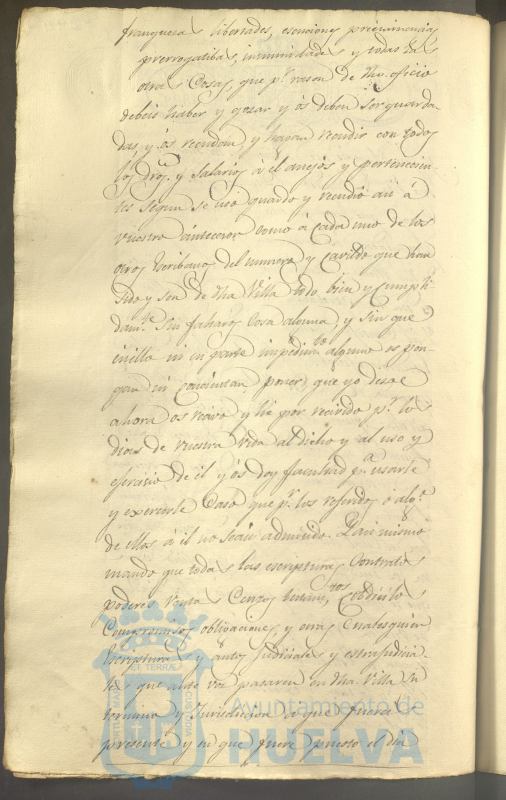 franquesas libertades, esenciones preeminencias
prerrogatibas, inmunidades y todas las
otras Cosas, que pr. rason de dho. oficio
debeis haber y gozar y os deben ser guarda
das, y os recudan, y hagan recudir con todos
los dros. y salarios á él anejos y pertenecien-
tes segun se usó guardó y recudió asi á
vuestro antecesor como á cada uno de los
otros Escribanos del numero y Cavildo que han
sido y son de dha. Villa todo bien y cumpli
damte. sin faltaros cosa alguna y sin que
en ello ni en parte impedimto. alguno os pon-
gan ni consientan poner, que yo desde
ahora os recivo y he por recivido pr. los
dias de vuestra vida al dicho y al uso y
exercicio de él y os doy facultad pa. usarle
y exercerle Caso que pr. los referidos ó algo.
de ellos á él no seais admitido. Y asi mismo
mando que todas las escripturas Contratos
poderes ventas Censos testamtos. Cobdicilos
Compromisos obligaciones, y otras Cualesquier
Escripturas y autos judiciales y estrajudicia
les que ante vos pasaren en dha. Villa su
termino y Jurisdicion á que fuereis
presente y en que fuere puesto el dia
PORTUS MARIS ET TERRÆ CUSTODIA
Ayuntamiento de
HUELVA